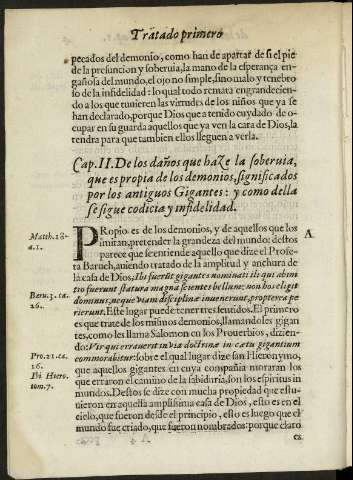 Tratado primero
pecados del demonio, como han de apartar de si el pie
de la presuncion y soberuia, la mano de la esperança en-
gañosa del mundo, el ojo no simple, sino malo y tenebro
so de la infidelidad: lo qual todo remata engrandecien-
do a los que tuuieren las virtudes de los niños que ya se
han declarado, porque Dios que a tenido cuydado de o-
cupar en su guarda aquellos que ya ven la cara de Dios, la
tendra para que tambien ellos lleguen a verla.
Cap. II. De los daños que haze la soberuia,
que es propia de los demonios, significados
por los antiguos Gigantes: y como della
se sigue codicia y infidelidad.
Matth. 18.
a. 1.
A
PRopio es de los demonios, y de aquellos que los
imitan, pretender la grandeza del mundo: destos
parece que se entiende aquello que dize el Profe-
ta Baruch, auiendo tratado de la amplitud y anchura de
la casa de Dios, Ibi fuerūt gigantes nominati illi qui ab ini
tio fuerunt statura magna scientes bellum: non hos elegit
Baru. 3. ca.
26.
dominus, neque viam disciplinæ inuenerunt, propterea pe
rierunt. Este lugar puede tener tres sentidos. El primero
es que trate de los mismos demonios, llamandoles gigan
tes, como les llama Salomon en los Prouerbios, dizien-
do: Vir qui errauerit in via doctrinæ in cætu gigantium
Pro. 21. ca.
16.
Ibi Hiero.
tom. 7.
commorabitur: sobre el qual lugar dize san Hieronymo,
que aquellos gigantes en cuya compañia moraran los
que erraron el camino de la sabiduria, son los espiritus in
mundos. Destos se dize con mucha propiedad que estu-
uieron en aquella amplissima casa de Dios, esto es en el
cielo, que fueron desde el principio, esto es luego que el
mundo fue criado, que fueron nombrados: porque claro
es